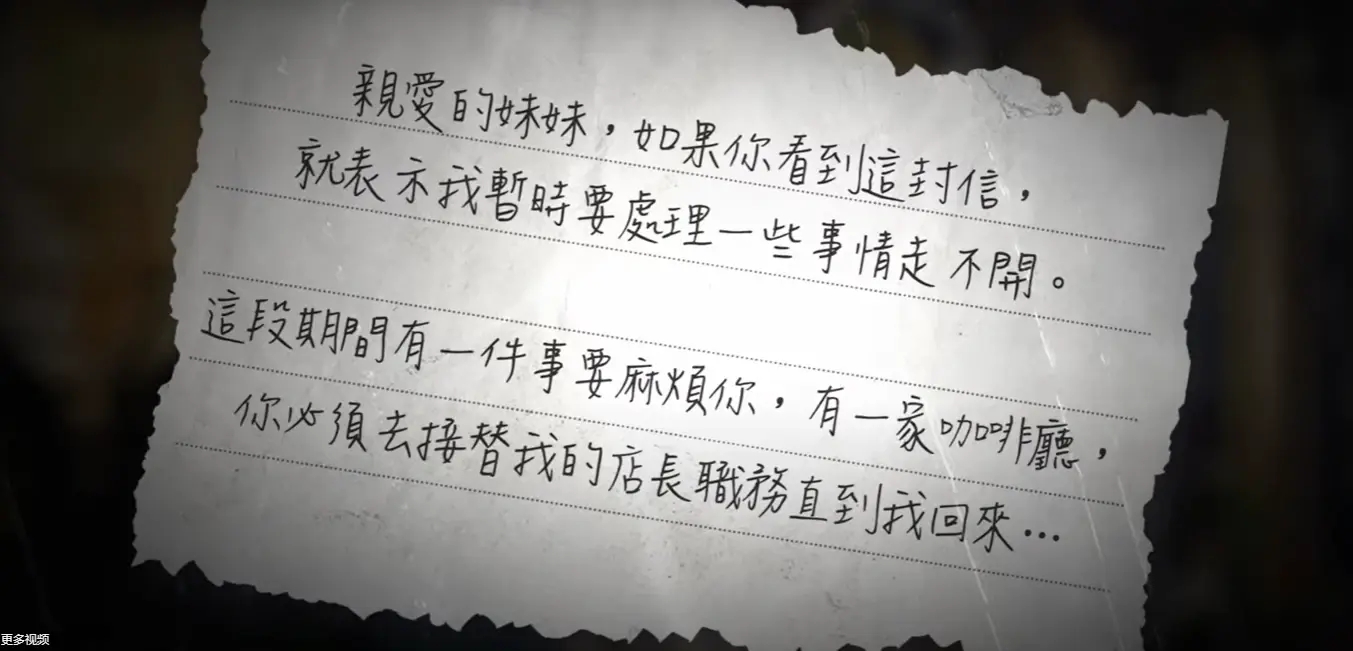 親愛的妹妹，如果你看到這封信，
就表示我暫時要處理一些事情走不開。
這段期間有一件事要麻煩你，有一家咖啡廳，
你必須去接替我的店長職務直到我回來…
更多视频